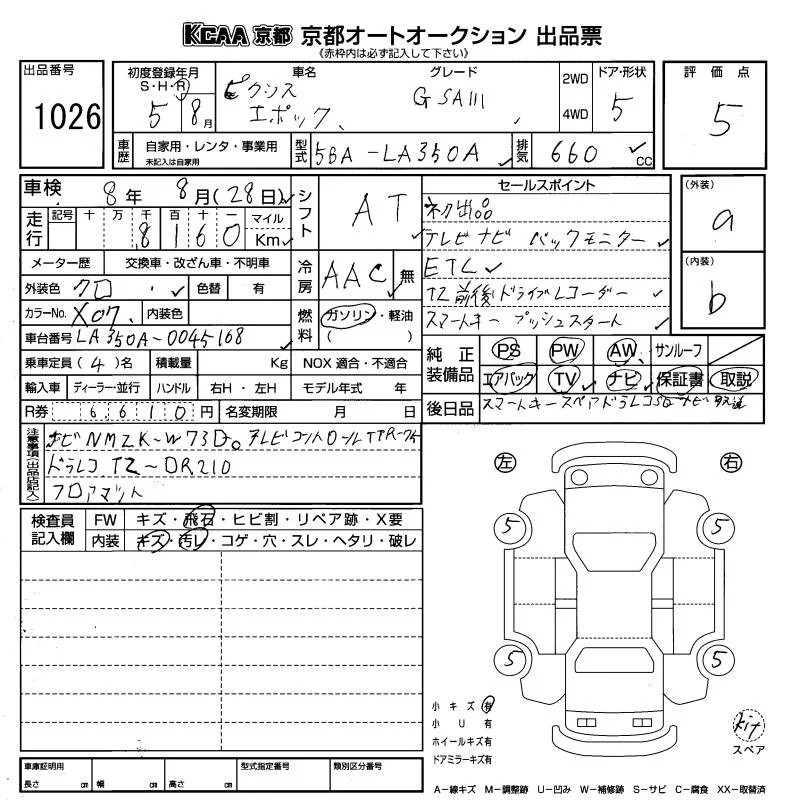 KCAA 京都 京都オートオークション 出品票
《赤枠内は必ず記入して下さい》
出品番号
1026
初度登録年月
S・H・R
5 8月
車名
ピクシス
エポック
グレード
G SAIII
2WD
4WD
ドア・形状
5
評価点
5
車歴
自家用・レンタ・事業用
未記入は自家用
型式
5BA-LA350A
排気
660 cc
車検
8年 8月(28日)
走行
記号 十 万 千 百 十 一
8 1 6 0
マイル
Km
シフト
AT
セールスポイント
初出品
テレビナビ バックモニター
ETC
TZ前後ドライブレコーダー
スマートキー プッシュスタート
(外装)
a
(内装)
b
メーター歴 交換車・改ざん車・不明車
冷房
AAC 無
外装色 クロ 色替 有
カラーNo. X07 内装色
燃料
ガソリン・軽油
( )
車台番号 LA350A-0045168
乗車定員(4)名 積載量 Kg NOX 適合・不適合
純正装備品
PS PW AW サンルーフ
エアバック TV ナビ 保証書 取説
輸入車 ディーラー・並行 ハンドル 右H・左H モデル年式 年
R券 6,610円 名変期限 月 日
後日品 スマートキースペアドラレコSDナビ取説
注意事項(出品店記入)
ナビNMZK-W73D。テレビコントロールTTR-
ドラレコ TZ-DR210
フロアマット
検査員記入欄
FW キズ・飛石・ヒビ割・リペア跡・X要
内装 キズ・汚レ・コゲ・穴・スレ・ヘタリ・破レ
左 右
5 5
5 5
小キズ有
小U有
ホイールキズ有
ドアミラーキズ有
kit
スペア
車庫証明用
長さ cm 幅 cm 高さ cm
型式指定番号
類別区分番号
A−線キズ M−調整跡 U−凹み W−補修跡 S−サビ C−腐食 XX−取替済